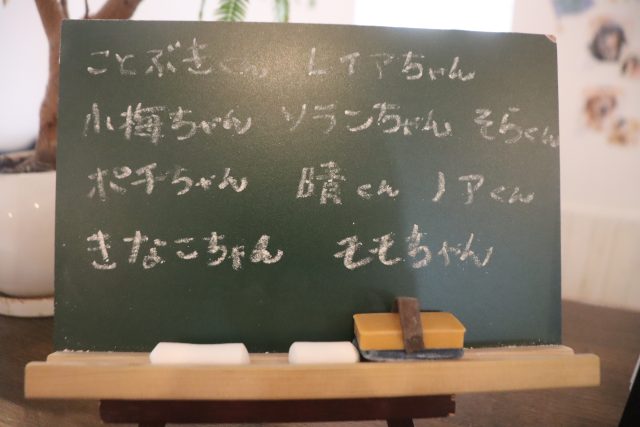 ことぶきくん レイアちゃん
小梅ちゃん ソランちゃん そらくん
ポチちゃん 晴くん ノアくん
きなこちゃん そそちゃん